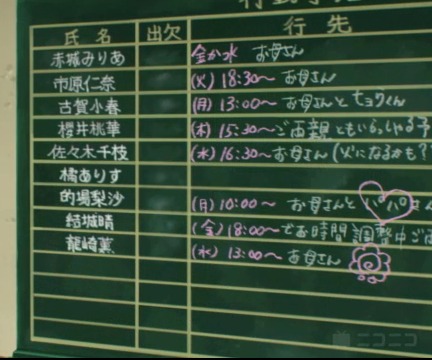 氏名 出欠 行先
赤城みりあ 金か水 お母さん
市原仁奈 (火) 18:30～ お母さん
古賀小春 (月) 13:00～ お母さんとヒョウくん
櫻井桃華 (木) 15:30～ ご両親ともいらっしゃる予
佐々木千枝 (水) 16:30～ お母さん(火になるかも??
橘ありす
的場梨沙 (日) 10:00～ お母さんとパパさん
結城晴 (金) 18:00～ でお時間調整中
龍崎薫 (水) 13:00～ お母さん
ニコニコ